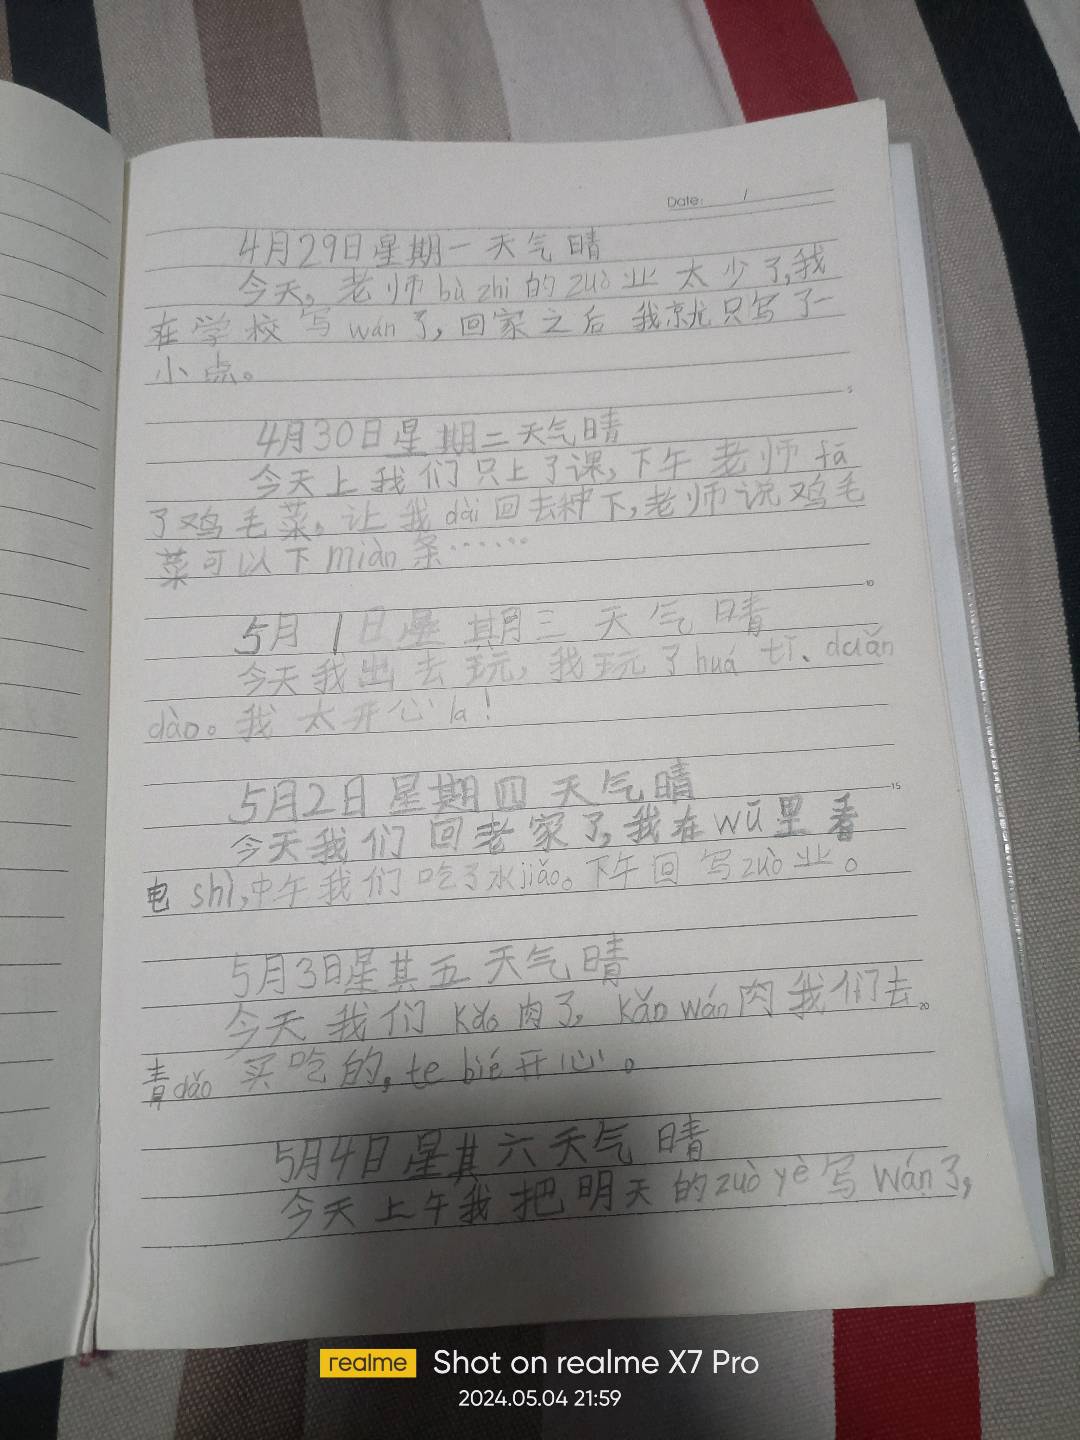 Date: /
4月29日星期一天气晴
今天，老师bù zhì的zuò业太少了，我
在学校写wán了，回家之后我就只写了一
小点。
5
4月30日星期二天气晴
今天上我们只上了课，下午老师fā
了鸡毛菜。让我dài回去种下，老师说鸡毛
菜可以下miàn条……
10
5月1日星期三天气晴
今天我出去玩，我玩了huá tī、duǎn
dào。我太开心la！
5月2日星期四天气晴
15
今天我们回老家了，我在wū里看
电shì，中午我们吃了水jiǎo。下午回写zuò业。
5月3日星其五天气晴
今天我们kǎo肉了，kǎo wán肉我们去
20
青dǎo买吃的，te bié开心。
5月4日星其六天气晴
今天上午我把明天的zuò yè写wán了，
realme Shot on realme X7 Pro
2024.05.04 21:59